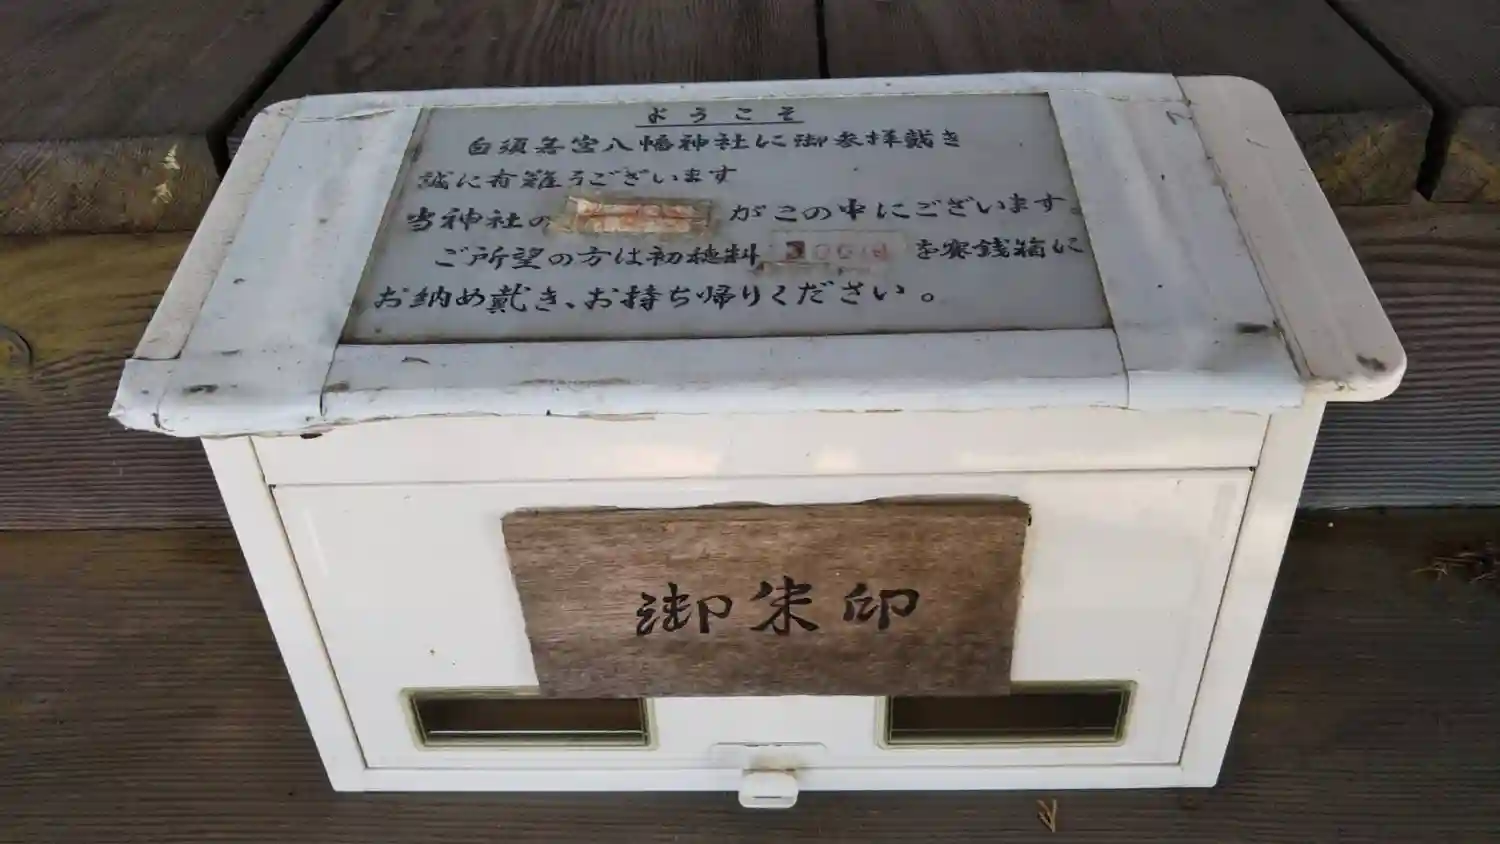 ようこそ
白須若宮八幡神社に御参拝戴き
誠に有難うございます
当神社の がこの中にございます。
ご所望の方は初穂料 を賽銭箱に
お納め戴き、お持ち帰りください。
御朱印